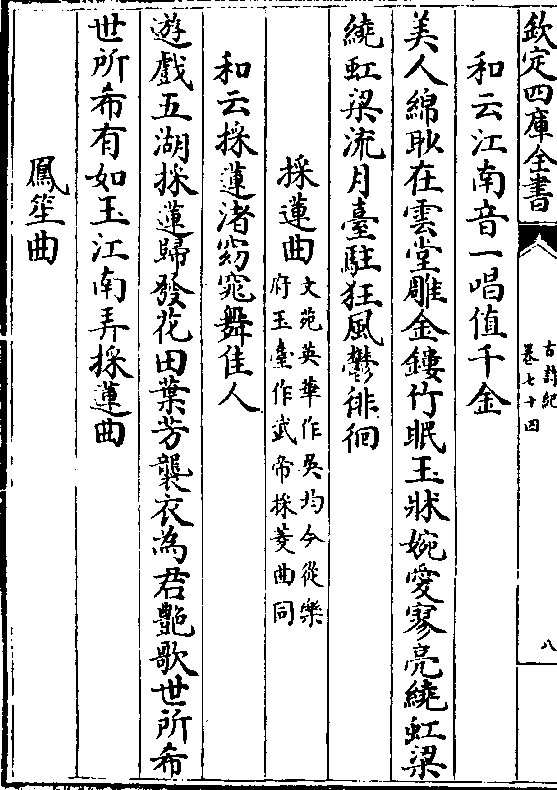 欽定四庫全書
古詩紀
卷七十四
八
和云江南音一唱值千金
美人綿眇在雲堂雕金鏤竹眠玉牀婉愛寥亮繞虹梁
繞虹梁流月臺駐狂風鬱徘徊
採蓮曲
文苑英華作吳均今從樂
府玉臺作武帝採菱曲同
和云採蓮渚窈窕舞佳人
遊戲五湖採蓮歸發花田葉芳襲衣為君艷歌世所希
世所希有如玉江南弄採蓮曲
鳳笙曲